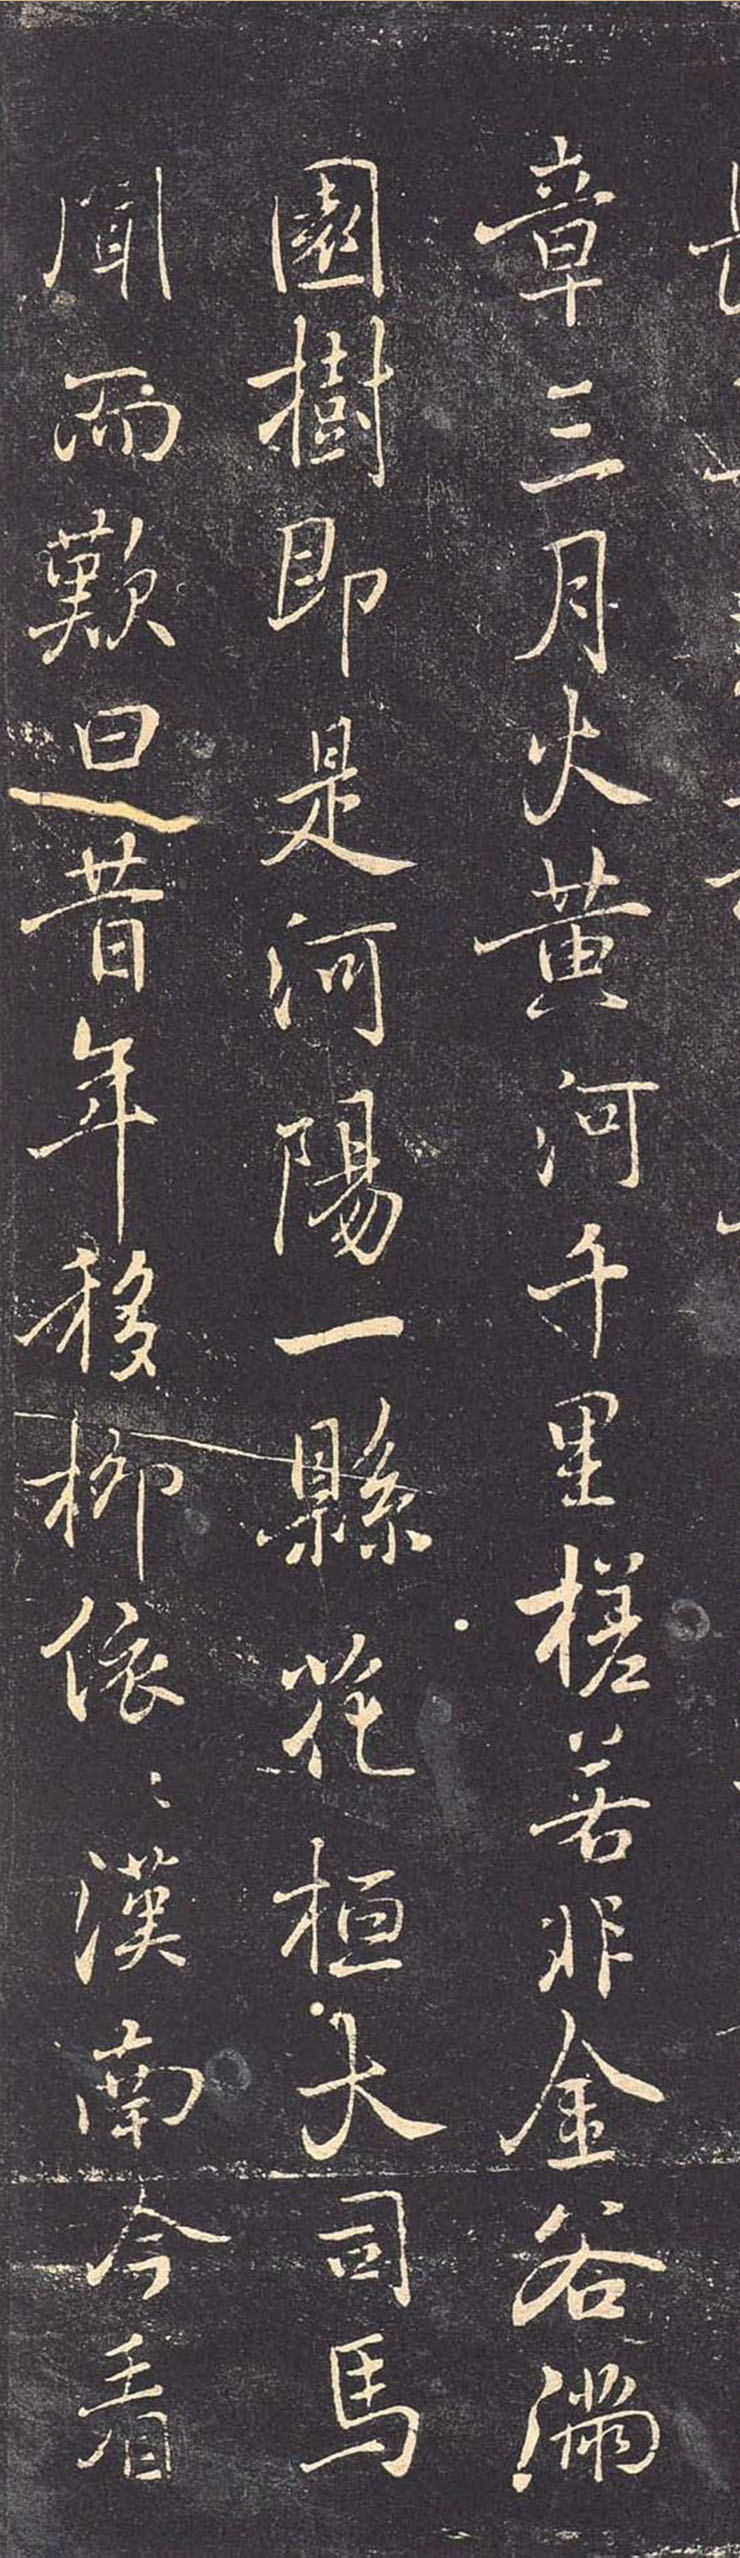 章三月火黄河千里槎若非金谷滿
園樹即是河陽一縣花桓大司馬
聞而歎曰昔年移柳依〻漢南今看